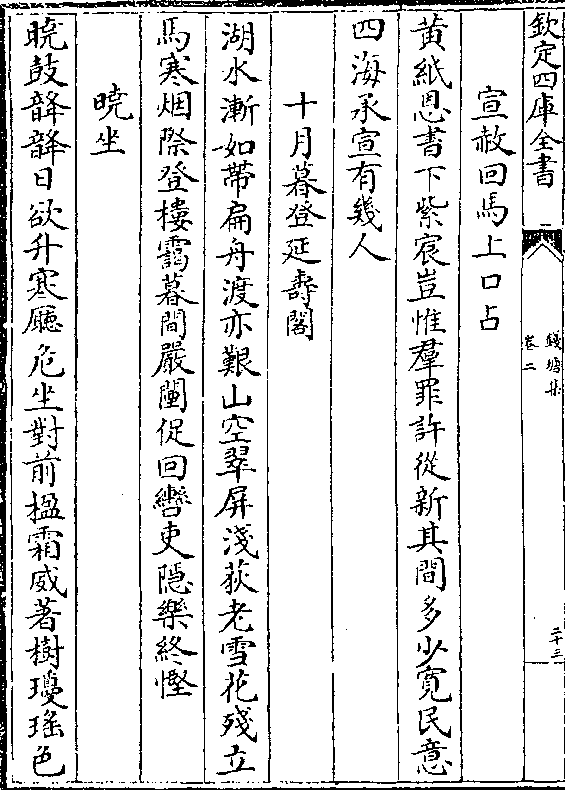 欽定四庫全書
錢塘集
卷二
二十三
宣赦回馬上口占
黃紙恩書下紫宸豈惟羣罪許從新其間多少寛民意
四海承宣有幾人
十月暮登延壽閣
湖水漸如帶扁舟渡亦艱山空翠屏淺荻老雪花殘立
馬寒烟際登樓靄暮間嚴闉促回轡吏隱樂終慳
曉坐
曉鼓韸韸日欲升寒廳危坐對前楹霜威著樹瓊瑤色